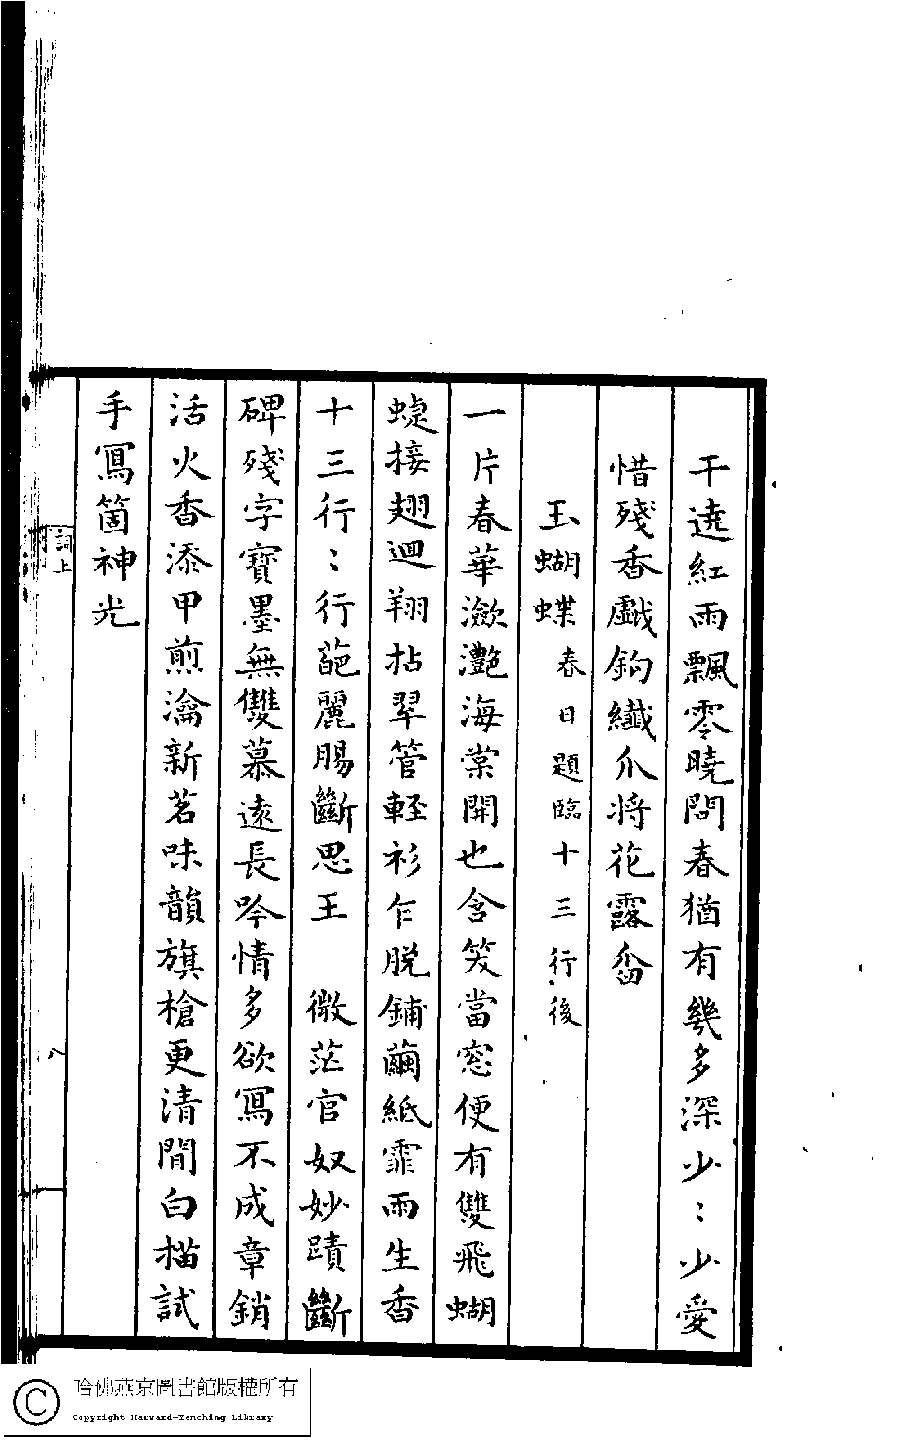 干遶紅雨飄零曉問春猶有幾多深少〻少愛
惜殘香戲鉤纖爪將花露畨
玉蝴蝶 春日題臨十三行後
一片春華瀲灩海棠開也含笑當窓便有雙飛蝴
蜨接翅迴翔拈翠管輕衫乍脱鋪繭紙霏雨生香
十三行〻行葩麗腸斷思王　微茫官奴妙蹟斷
碑殘字寶墨無雙慕遠長吟情多欲寫不成章銷
活火香添甲煎瀹新茗味韻旗槍更清閒白描試
手寫箇神光
詞上
八
哈佛燕京圖書館版權所有
Copyright Harvard-Yenching Library